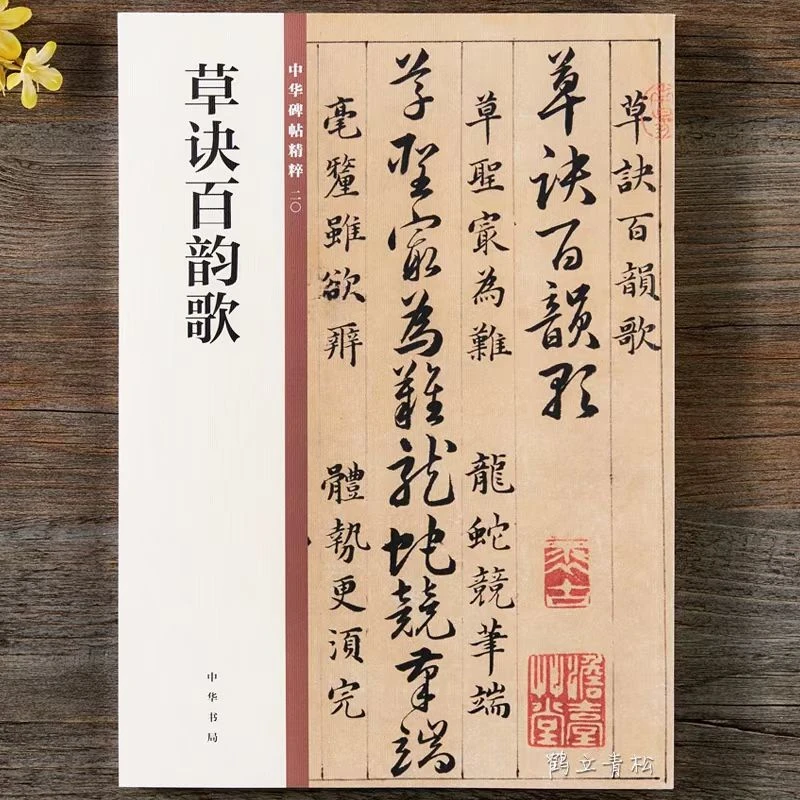 草诀百韵歌
中华碑帖精粹 二〇
中华书局
草訣百韻歌
草訣百韻歌
草聖㝡為難 龍蛇競筆端
草聖㝡為難龍蛇競筆端
毫釐雖欲辨 體勢更湏完
鹤立青松